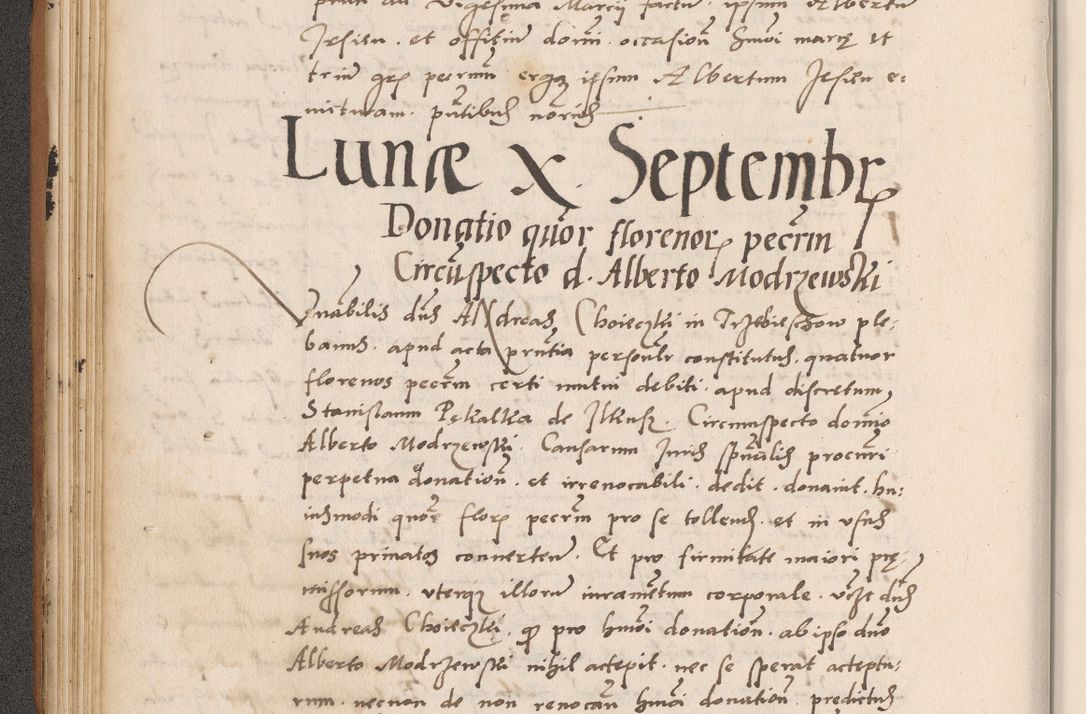 Vigesima Marcij factu ipsum Albertu
Jesien . et offitiu domi . occasion hmoi marce et
triu grs pecrum erga ipsum Albertum Jesien e:
micturam . pntibus
Lunæ X. Septembr
Donatio quor florenor pecrm
Circuspecto d. Alberto Modrzewski
Venabilis dns Andreas Choieczki in Trzebieschow ple:
banus . apud acta pruntia personlr constitutus . quatuor
florenos pecrm certi mutui debiti . apud discretum
Stanislaum Pekalka de Ilkusz . Circumspecto domio
Alberto Modrzewski . Causarum Juris spuualis procuri
perpetua donation . et irreuocabili . dedit . donauit . hu:
iusmodi quor flor pecrm pro se tollendos . et in vsus
suos priuatos conuertend . Et pro firmitate maiori pre:
missorum . vterque illoru iuramentum corporale . vczt dns
Andreas Choieczki . q pro hmoi donation . ab ipso dno
Alberto Modrzewski nihil accepit . nec se sperat acceptu:
rum . necnon de non reuocan hmoi donation . predictus